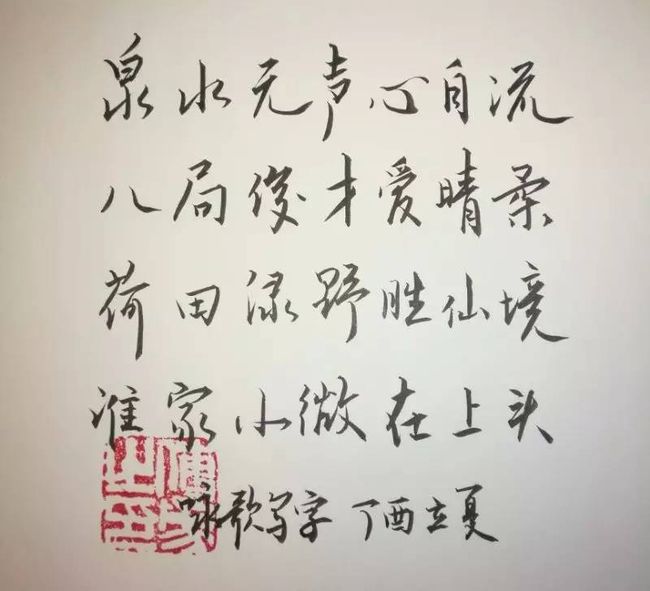 泉水无声心自流
八局俊才爱晴柔
荷田绿野胜仙境
谁家小微在上头
咏歌写字 丁酉立夏